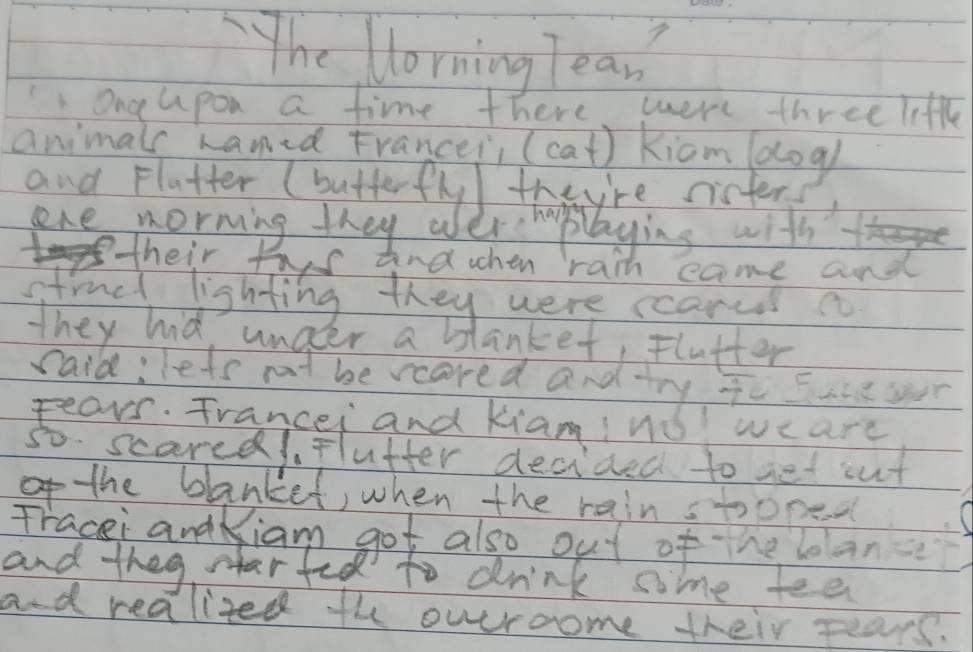 "The Morning Tear"
Onqe upon a time there were three little
animals named Francei, (cat) Kiam (dog)
and Flutter (butterfly) they're sisters,
one morning they wer happy playing with
their toys and when rain came and
struct lighting they were scared so
they hid under a blanket, Flutter
said: lets not be scared and try to face our
Fears. Francei and Kiam: no! we are
so scared!. Flutter decided to get out
of the blanket, when the rain stopped
Fracei and Kiam got also out of the blanket
and they started to drink some tea
and realized the overcome their Fears.